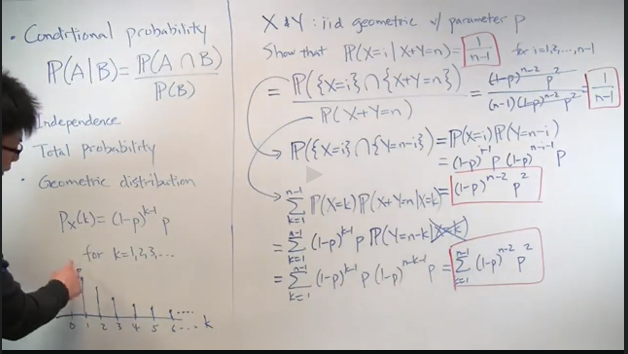 • Conditional probability
P(A|B) = P(A ∩ B) / P(B)
Independence
Total probability
• Geometric distribution
P_X(k) = (1-p)^{k-1} p
for k=1,2,3,...
0 1 2 3 4 5 6 ... k
X & Y : iid geometric w/ parameter p
Show that P(X=i | X+Y=n) = 1/(n-1) for i=1,2,...,n-1
= P({X=i} ∩ {X+Y=n}) / P(X+Y=n) = (1-p)^{n-2} p^2 / (n-1)(1-p)^{n-2} p^2 = 1/(n-1)
P({X=i} ∩ {Y=n-i}) = P(X=i) P(Y=n-i)
= (1-p)^{i-1} p (1-p)^{n-i-1} p
= (1-p)^{n-2} p^2
∑_{k=1}^{n-1} P(X=k) P(X+Y=n | X=k)
= ∑_{k=1}^{n-1} (1-p)^{k-1} p P(Y=n-k | X=k)
= ∑_{k=1}^{n-1} (1-p)^{k-1} p (1-p)^{n-k-1} p = ∑_{i=1}^{n-1} (1-p)^{n-2} p^2